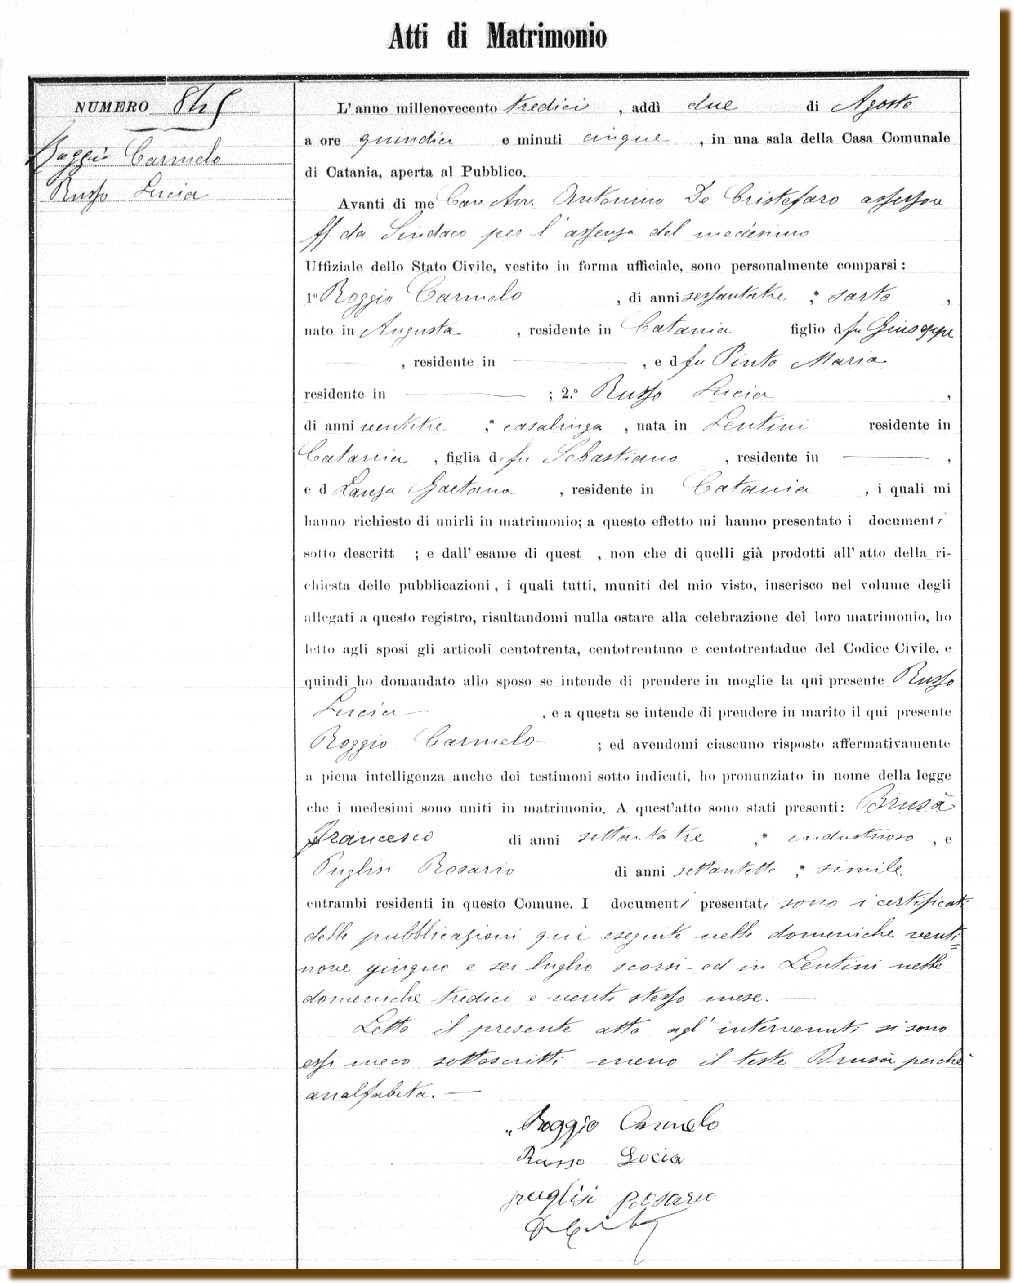 Atti di Matrimonio
NUMERO 845
Boggio Carmelo
Russo Lucia
L'anno millenovecento tredici , addì due di Agosto
a ore quindici e minuti cinque , in una sala della Casa Comunale
di Catania, aperta al Pubblico.
Avanti di me Cav. Avv. Antonino De Cristofaro assessore
ff da Sindaco per l'assenza del medesimo
Uffiziale dello Stato Civile, vestito in forma ufficiale, sono personalmente comparsi:
1º Boggio Carmelo , di anni sessantatre , sarto ,
nato in Augusta , residente in Catania figlio d fu Giuseppe
, residente in , e d fu Pinto Maria
residente in ; 2.º Russo Lucia ,
di anni ventitre , casalinga , nata in Lentini residente in
Catania , figlia d fu Sebastiano , residente in ,
e d Lanza Gaetana , residente in Catania , i quali mi
hanno richiesto di unirli in matrimonio; a questo effetto mi hanno presentato i documenti
sotto descritt ; e dall'esame di quest , non che di quelli già prodotti all'atto della ri-
chiesta delle pubblicazioni, i quali tutti, muniti del mio visto, inserisco nel volume degli
allegati a questo registro, risultandomi nulla ostare alla celebrazione del loro matrimonio, ho
letto agli sposi gli articoli centotrenta, centotrentuno e centotrentadue del Codice Civile, e
quindi ho domandato allo sposo se intende di prendere in moglie la qui presente Russo
Lucia , e a questa se intende di prendere in marito il qui presente
Boggio Carmelo ; ed avendomi ciascuno risposto affermativamente
a piena intelligenza anche dei testimoni sotto indicati, ho pronunziato in nome della legge
che i medesimi sono uniti in matrimonio. A quest'atto sono stati presenti: Brusà
Francesco di anni settantatre , industrioso , e
Puglisi Rosario di anni settantotto , simile
entrambi residenti in questo Comune. I documenti presentati sono i certificati
delle pubblicazioni qui eseguite nelle domeniche venti=
nove giugno e sei luglio scorsi ed in Lentini nelle
domeniche tredici e venti stesso mese.
Letto il presente atto agl'intervenuti si sono
essi meco sottoscritti meno il teste Brusà perchè
analfabeta.
Boggio Carmelo
Russo Locia
puglisi Rosario